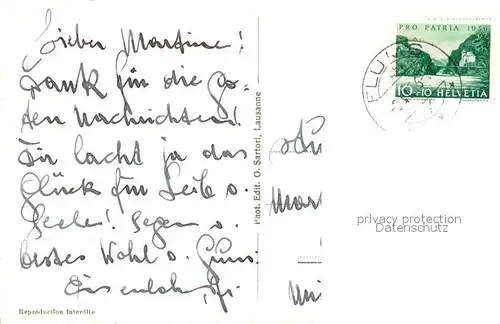 Lieber Martine!
Dank für die gu-
ten Nachrichten!
Dir lacht ja das
Glück für Leib u.
Seele! Segen u.
bestes Wohl u. Gruss
Phot. Edit. O. Sartori, Lausanne
Reproduction Interdite
PRO PATRIA 1956
10+10 HELVETIA
FLU
Mar
privacy protection
Datenschutz